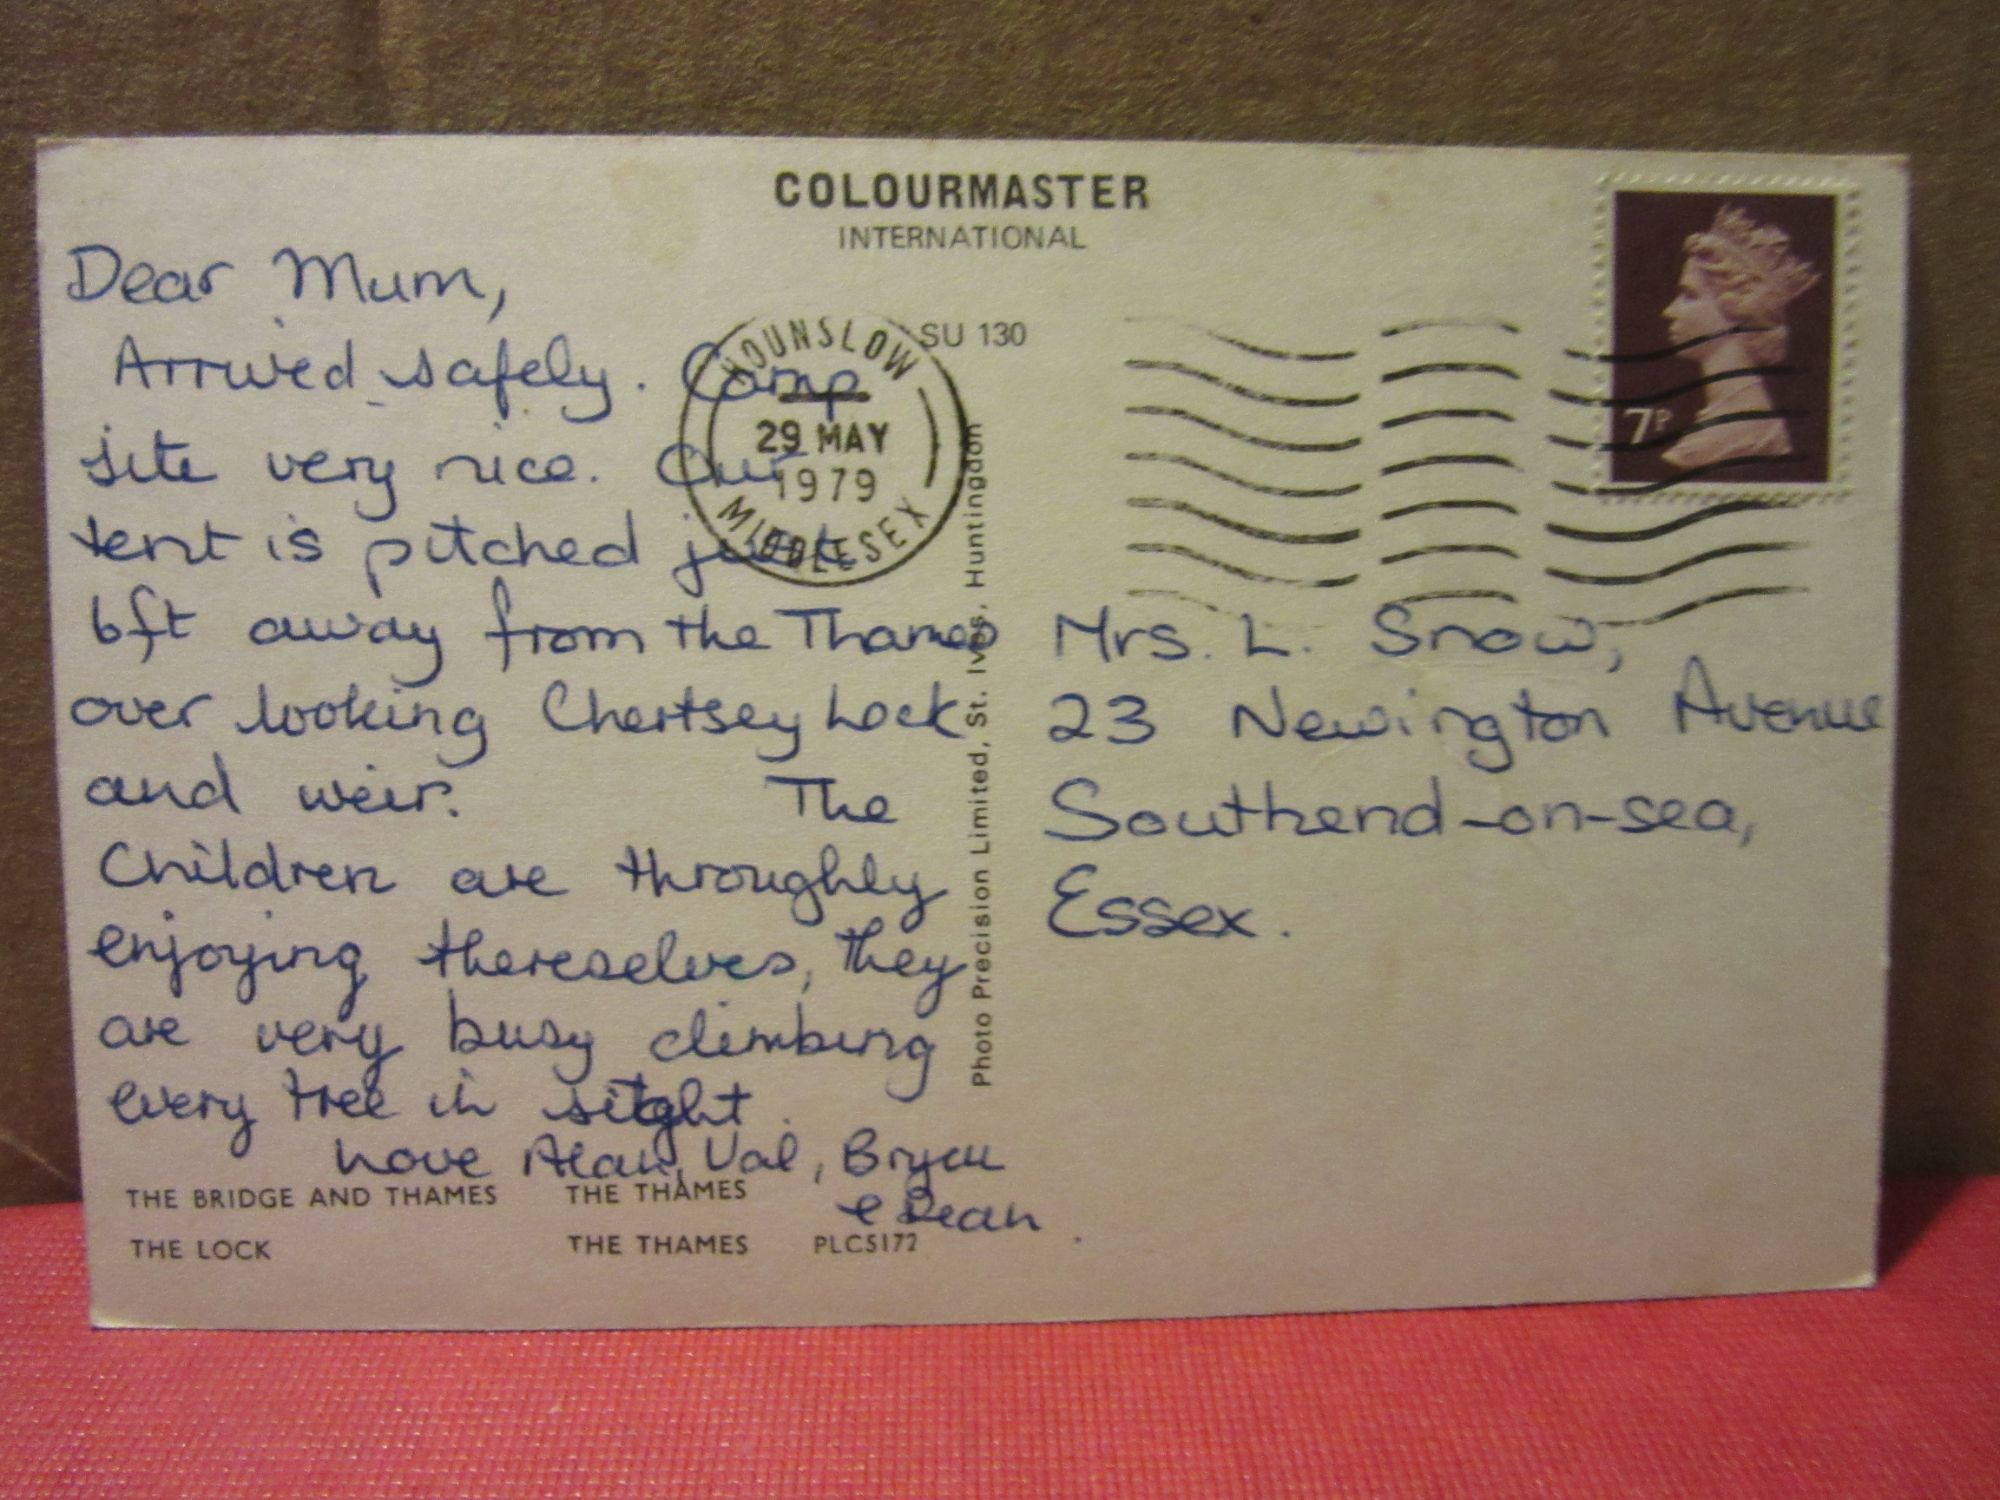 COLOURMASTER
INTERNATIONAL
SU 130
7P
HOUNSLOW
29 MAY
1979
MIDDLESEX
Dear Mum,
Arrived safely. Camp
site very nice. Our
tent is pitched just
6ft away from the Thames
over looking Chertsey Lock
and weir. The
Children are throughly
enjoying thereselves, they
are very busy climbing
every tree in sight.
Love Alan, Val, Bryan
& Dean.
Mrs. L. Snow,
23 Newington Avenue
Southend-on-sea,
Essex.
Photo Precision Limited, St. Ives, Huntingdon
THE BRIDGE AND THAMES THE THAMES
THE LOCK THE THAMES PLC5172